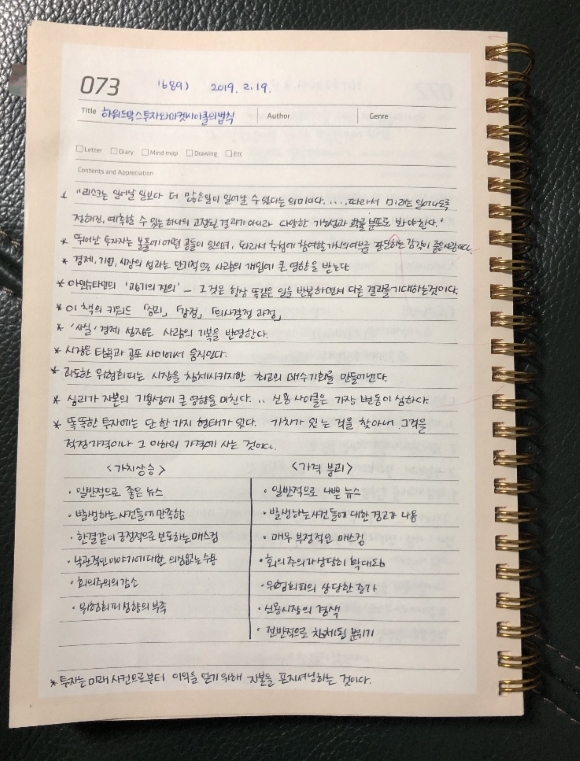 073 1689) 2019. 2. 19.
Title 하워드막스 투자와 마켓사이클의 법칙 Author Genre
Letter Diary Mind map Drawing Etc
Contents and Appreciation
* "리스크는 일어날 일보다 더 많은 일이 일어날 수 있다는 의미이다. .... 따라서 미래는 일어나도록
정해진, 예측할 수 있는 하나의 고정된 결과가 아니라 다양한 가능성과 확률 분포로 봐야 한다."
* 뛰어난 투자자는 보통에 어떤 공들이 있으며, 따라서 추첨에 참여할 가치
* 경제, 기업, 시장의 성과는 단기적으로 사람의 개입에 큰 영향을 받는다
* 아인슈타인의 '광기의 정의' – 그것은 항상 똑같은 일을 반복하면서 다른 결과를 기대하는 것이다.
* 이 책의 키워드 「심리」 「감정」 「의사결정 과정」
* '사실' 경제 성장은 사람의 기복을 반영한다.
* 시장은 탐욕과 공포 사이에서 움직인다.
* 과도한 위험회피는 시장을 침체시키지만 최고의 매수기회를 만들어낸다.
* 심리가 자본의 가용성에 큰 영향을 미친다. .. 신용 사이클은 가장 변동이 심하다.
* 똑똑한 투자에는 단 한 가지 형태가 있다. 가치가 있는 것을 찾아내 그것을
적정가격이나 그 이하의 가격에 사는 것이다.
<가치상승> <가격 붕괴>
· 일반적으로 좋은 뉴스 · 일반적으로 나쁜 뉴스
· 발생하는 사건들에 만족함 · 발생하는 사건들에 대한 경고가 나옴
· 한결같이 긍정적으로 보도하는 매스컴 · 매우 부정적인 매스컴
· 낙관적인 이야기에 대한 의심없는 수용 · 회의주의가 상당히 확대됨
· 회의주의의 감소 · 위험회피의 상당한 증가
· 위험회피 성향의 부족 · 신용시장의 경색
· 전반적으로 침체된 분위기
* 투자는 미래 사건으로부터 이익을 얻기 위해 자본을 포지셔닝하는 것이다.